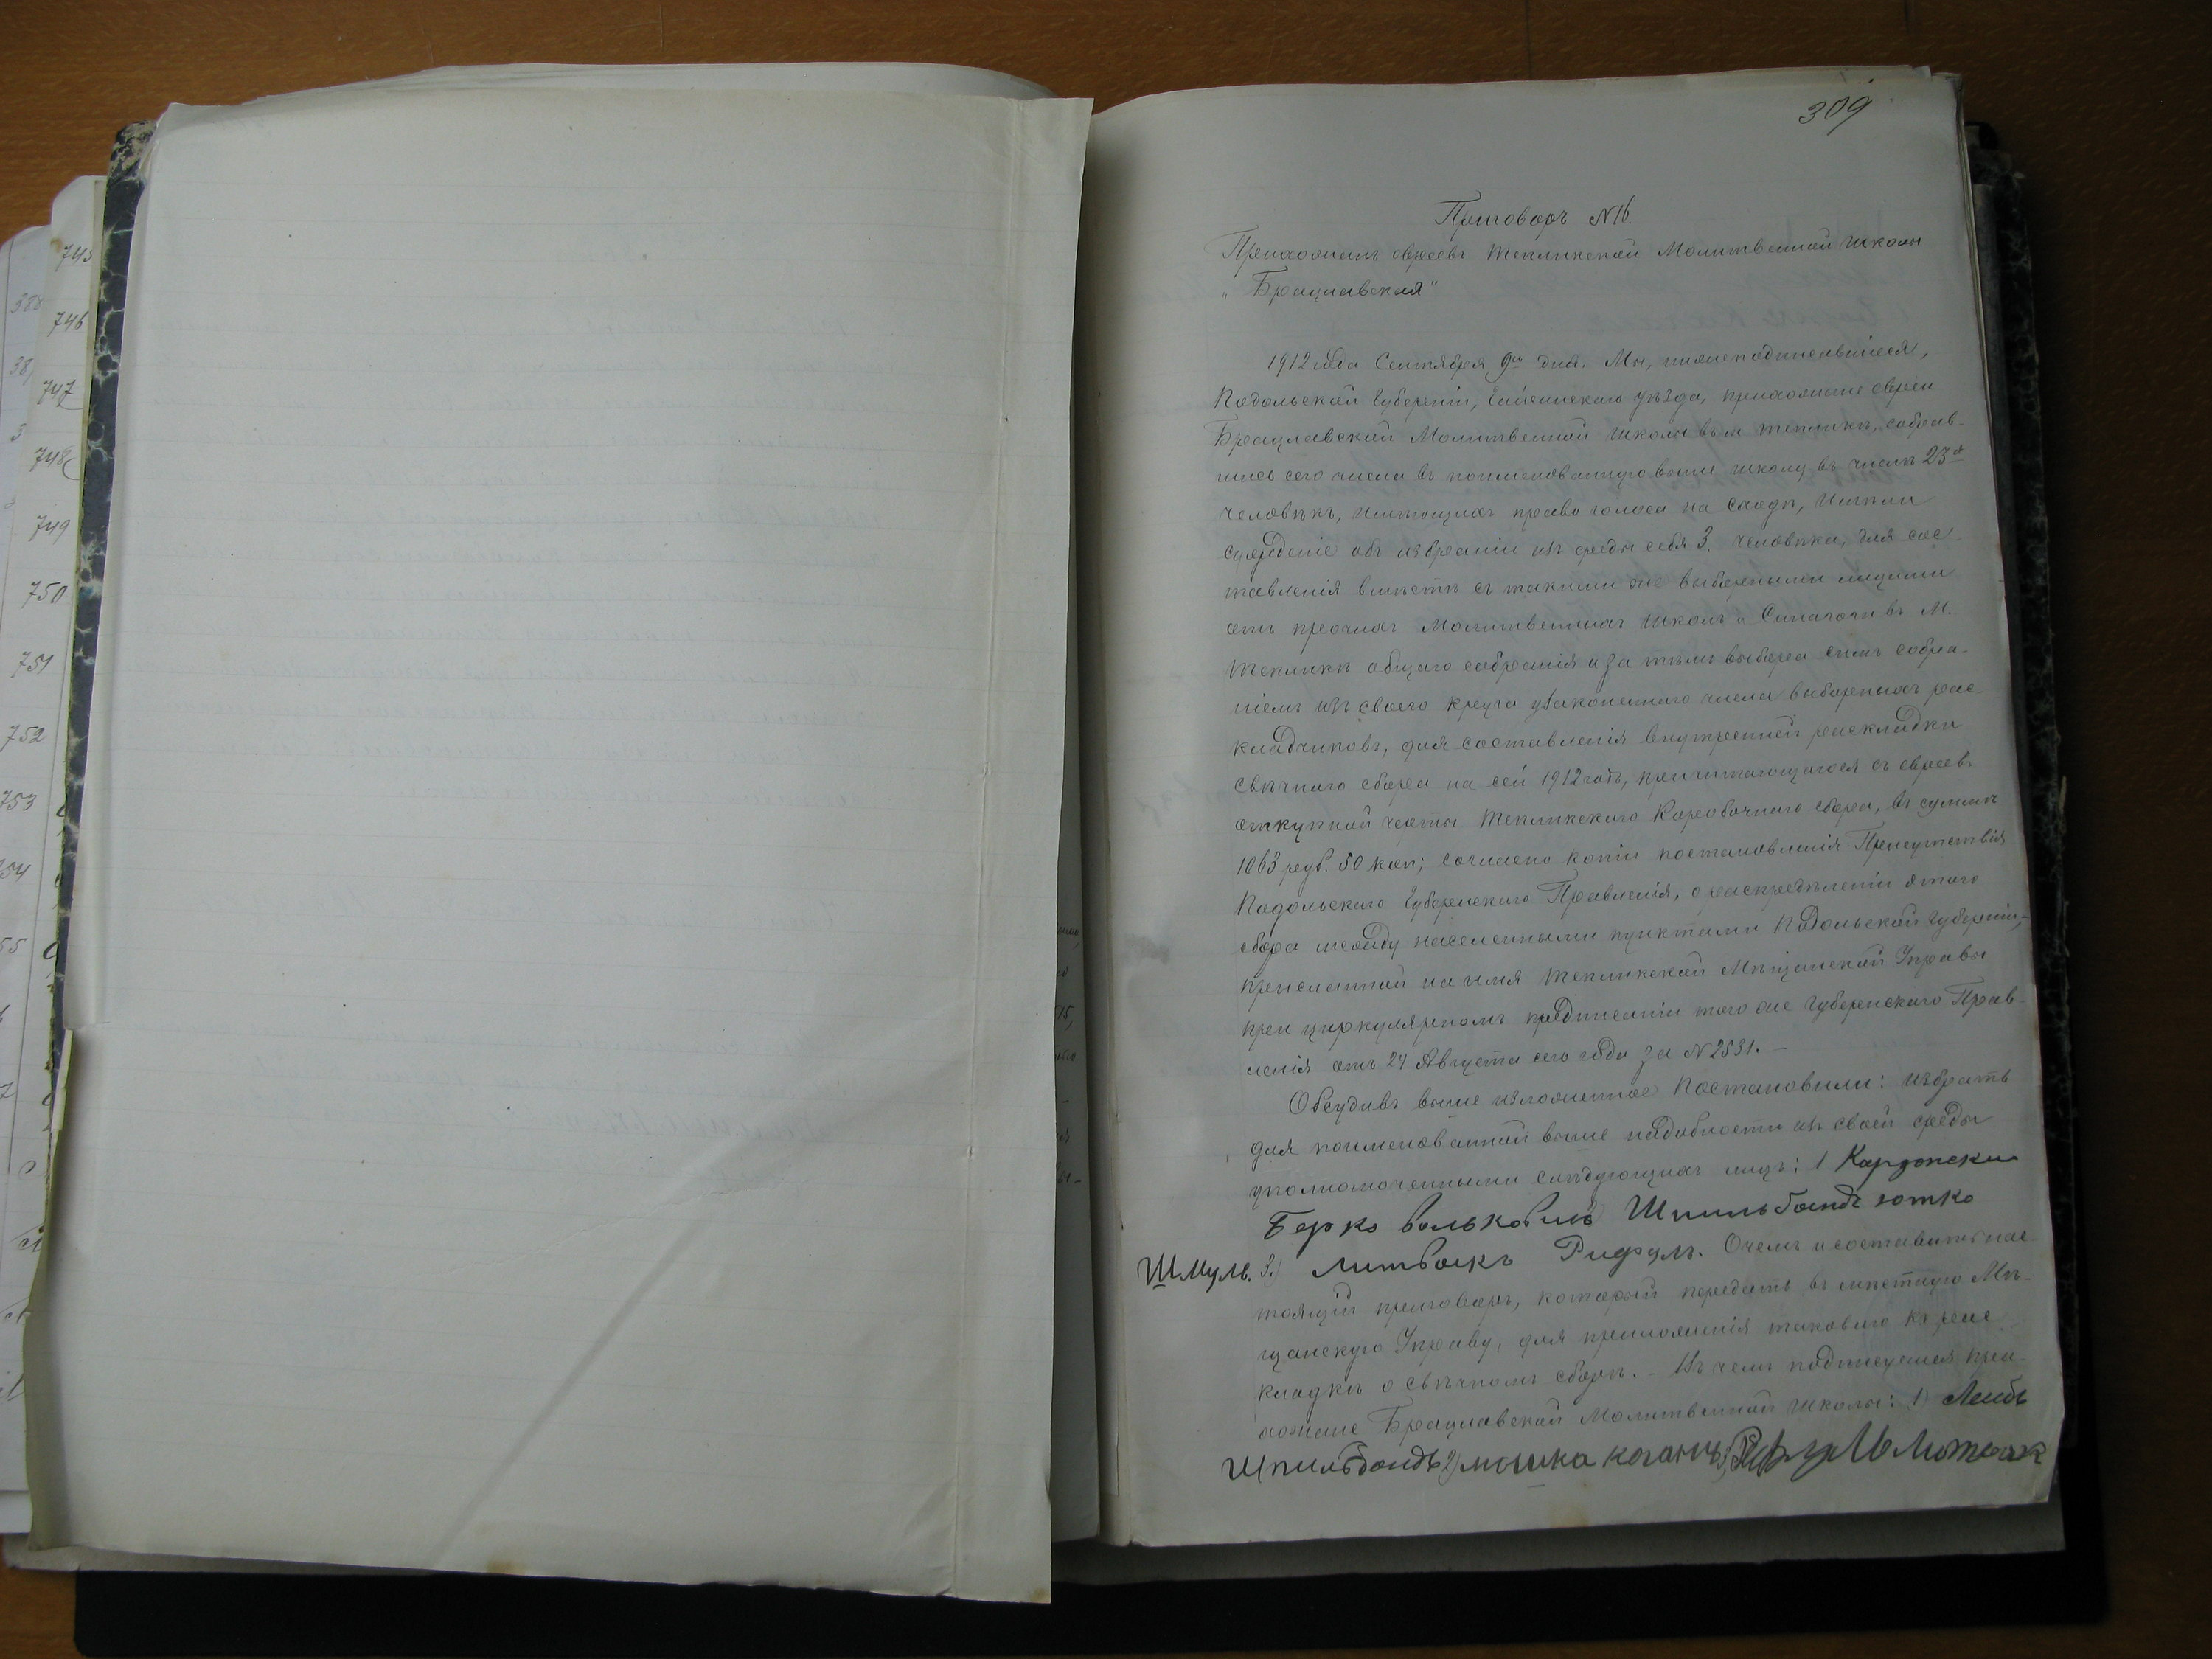 745
746
747
748
749
750
751
752
753
309
Приговоръ №16.
Прихожанъ евреевъ Тепликской Молитвенной школы
„Брацлавская"
1912 года Сентября 9го дня. Мы, нижеподписавшіеся,
Подольской Губерніи, Гайсинскаго уѣзда, прихожане евреи
Брацлавской Молитвенной школы въ м Тепликѣ, собрав-
шись сего числа въ поименованную выше школу въ числѣ 23х
человѣкъ, имѣющихъ право голоса на сходѣ, имѣли
сужденіе объ избраніи изъ среды себя 3. человѣка, для сос-
тавленія вмѣстѣ съ такими же выборными лицами
отъ прочихъ Молитвенныхъ школъ и Синагоги въ М.
Тепликѣ общаго собранія и за тѣмъ выбора симъ собра-
ніемъ изъ своего круга узаконеннаго числа выборныхъ рас-
кладчиковъ, для составленія внутренней раскладки
свѣчного сбора на сей 1912 годъ, причитающагося съ евреевъ
откупной части Тепликскаго Коробочнаго сбора, въ суммѣ
1063 руб. 50 коп; согласно копіи постановленія Присутствія
Подольскаго Губернскаго Правленія, о распредѣленіи этого
сбора между населенными пунктами Подольской Губерніи,-
присланной на имя Тепликской Мѣщанской Управы
при циркулярномъ предписаніи того же Губернскаго Прав-
ленія отъ 24 Августа сего года за №2831.-
Обсудивъ выше изложенное Постановили: избрать
для поименованной выше надобности изъ своей среды
уполномоченными слѣдующихъ лицъ: 1
Берко Вольковичъ Шпильбандъ
Шмуль. 3.) Литвакъ Рифулъ. О чемъ и составить нас-
тоящій приговоръ, который передать въ мѣстную Мѣ-
щанскую Управу, для приложенія таковаго къ рас-
кладкѣ о свѣчномъ сборѣ.- Въ чемъ подписуемся при-
хожане Брацлавской Молитвенной школы: 1) Лейбъ
Шпильбандъ 2) мошка коганъ 3)